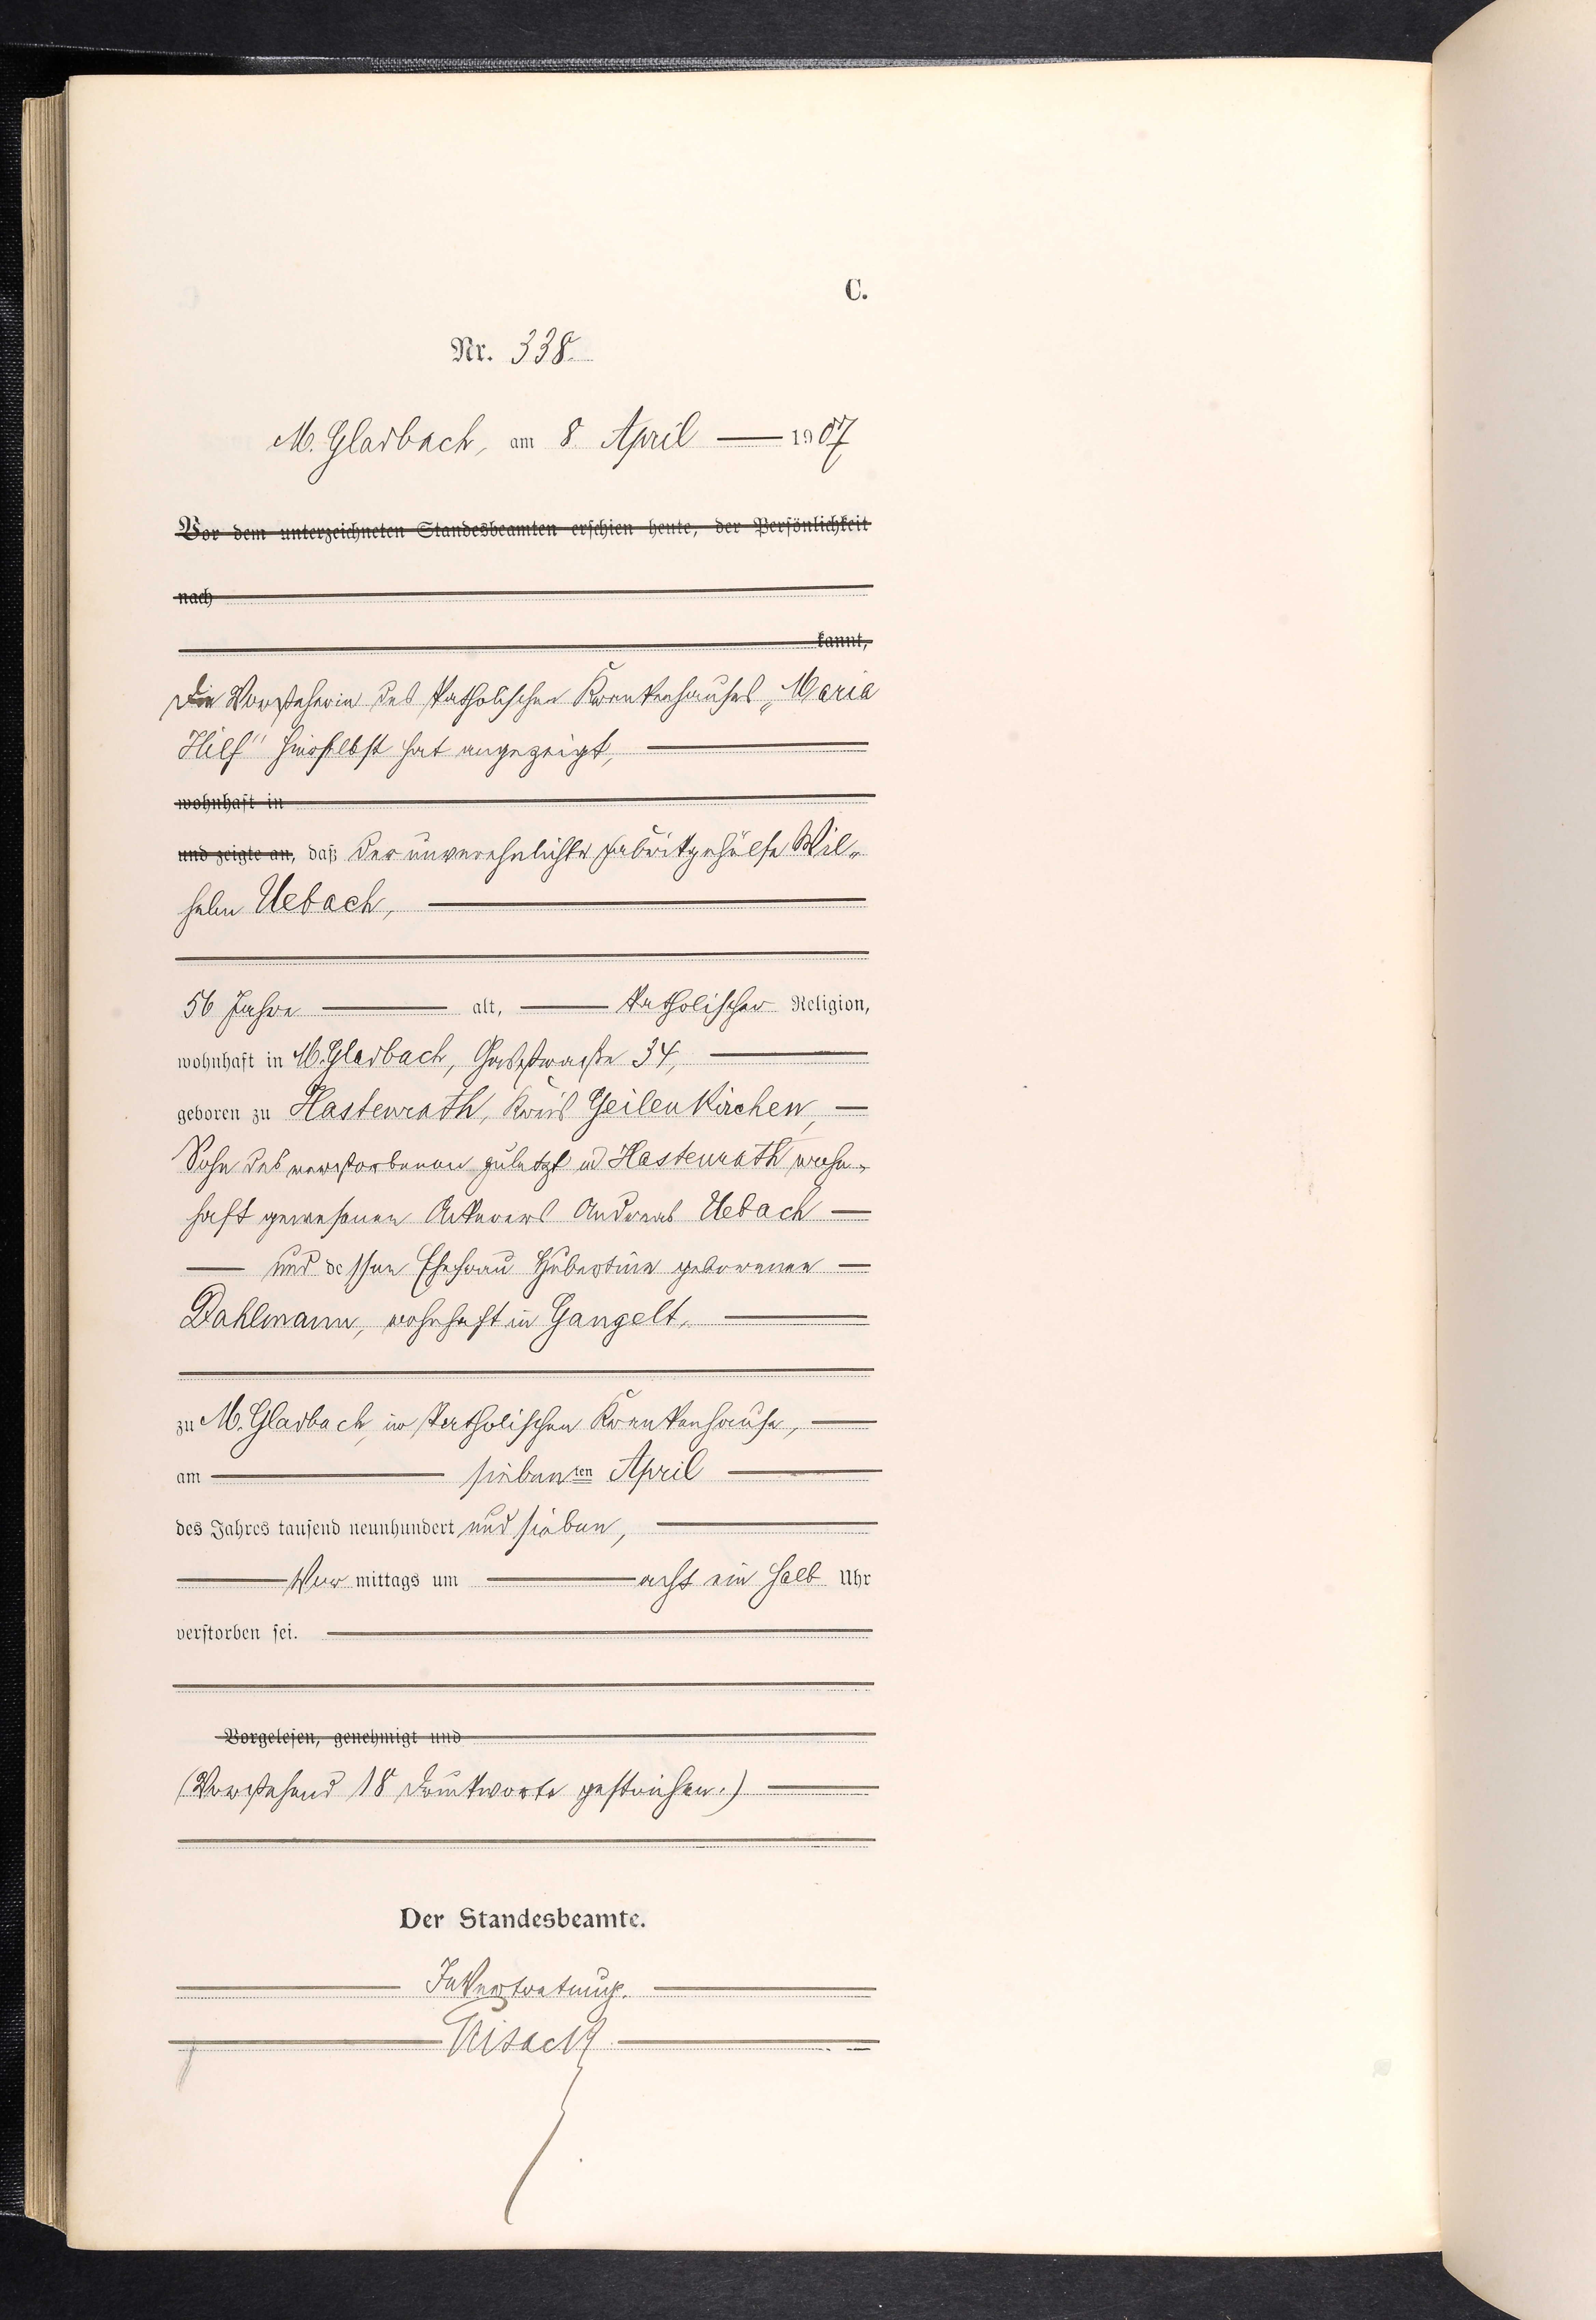 C.
Nr. 338.
M. Gladbach, am 8. April — 1907
Vor dem unterzeichneten Standesbeamten erschien heute, der Persönlichkeit
nach
kannt,
Die Vorsteherin des katholischen Krankenhauses „Maria
Hilf" hierselbst hat angezeigt, —
wohnhaft in
und zeigte an, daß der unverehelichte Fabrikgehülfe Wil-
helm Uebach, —
56 Jahre — alt, — katholischer Religion,
wohnhaft in M. Gladbach, 34, —
geboren zu Hastenrath, Kreis Geilenkirchen, —
Sohn des verstorbenen zuletzt in Hastenrath wohn-
haft gewesenen Ackerers Andreas Uebach —
— und dessen Ehefrau Hubertine geborenen —
Dahlmann, wohnhaft in Gangelt, —
zu M. Gladbach, im katholischen Krankenhause, —
am — siebenten April —
des Jahres tausend neunhundert und sieben, —
— Vor mittags um — acht ein halb Uhr
verstorben sei. —
Vorgelesen, genehmigt und
(Vorstehend 18 Druckworte gestrichen.) —
Der Standesbeamte.
— In Vertretung. —